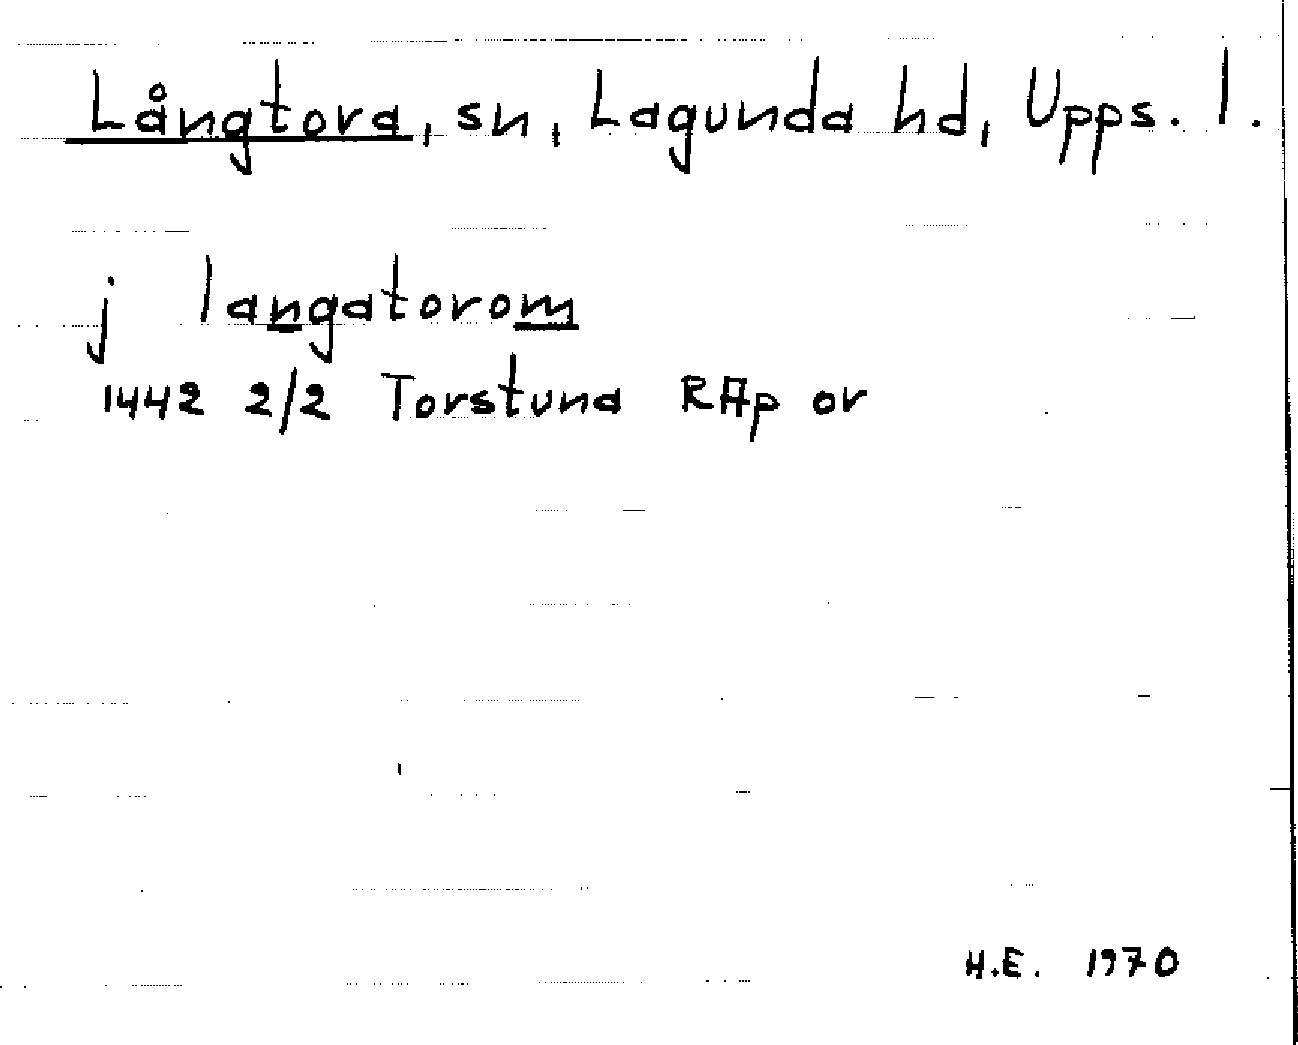 Långtora, sn, Lagunda hd, Upps. l.
j langatorom
1442 2/2 Torstuna RAp or
H.E. 1970